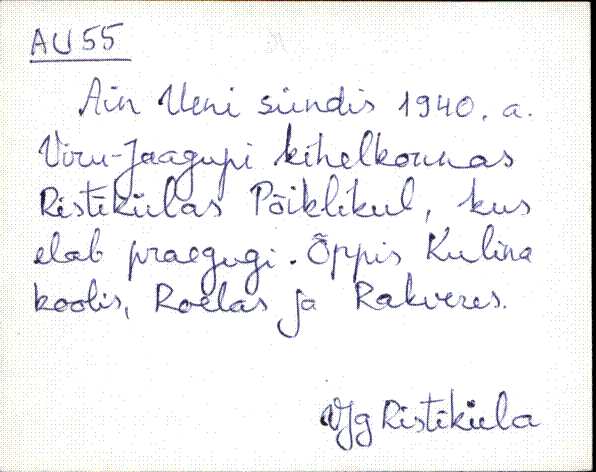 AU 55
Ain Ueni sündis 1940. a.
Viru-Jaagupi kihelkonnas
Ristikülas Põiklikul, kus
elab praegugi. Õppis Kulina
koolis, Roelas ja Rakveres.
VJg Ristiküla